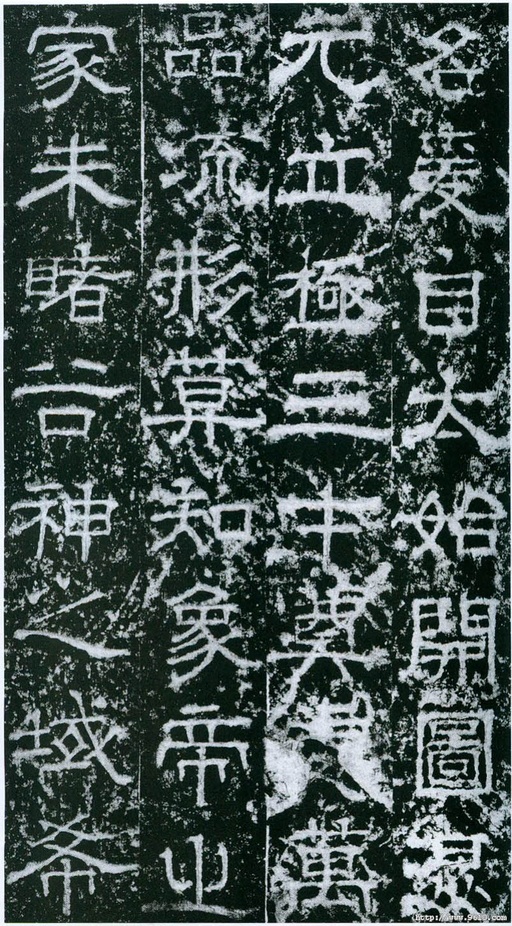 名爰自太始開圖
元立極三才奠萬
品流形莫知象帝之
家未睹谷神之域希
(http://www.9610.com)